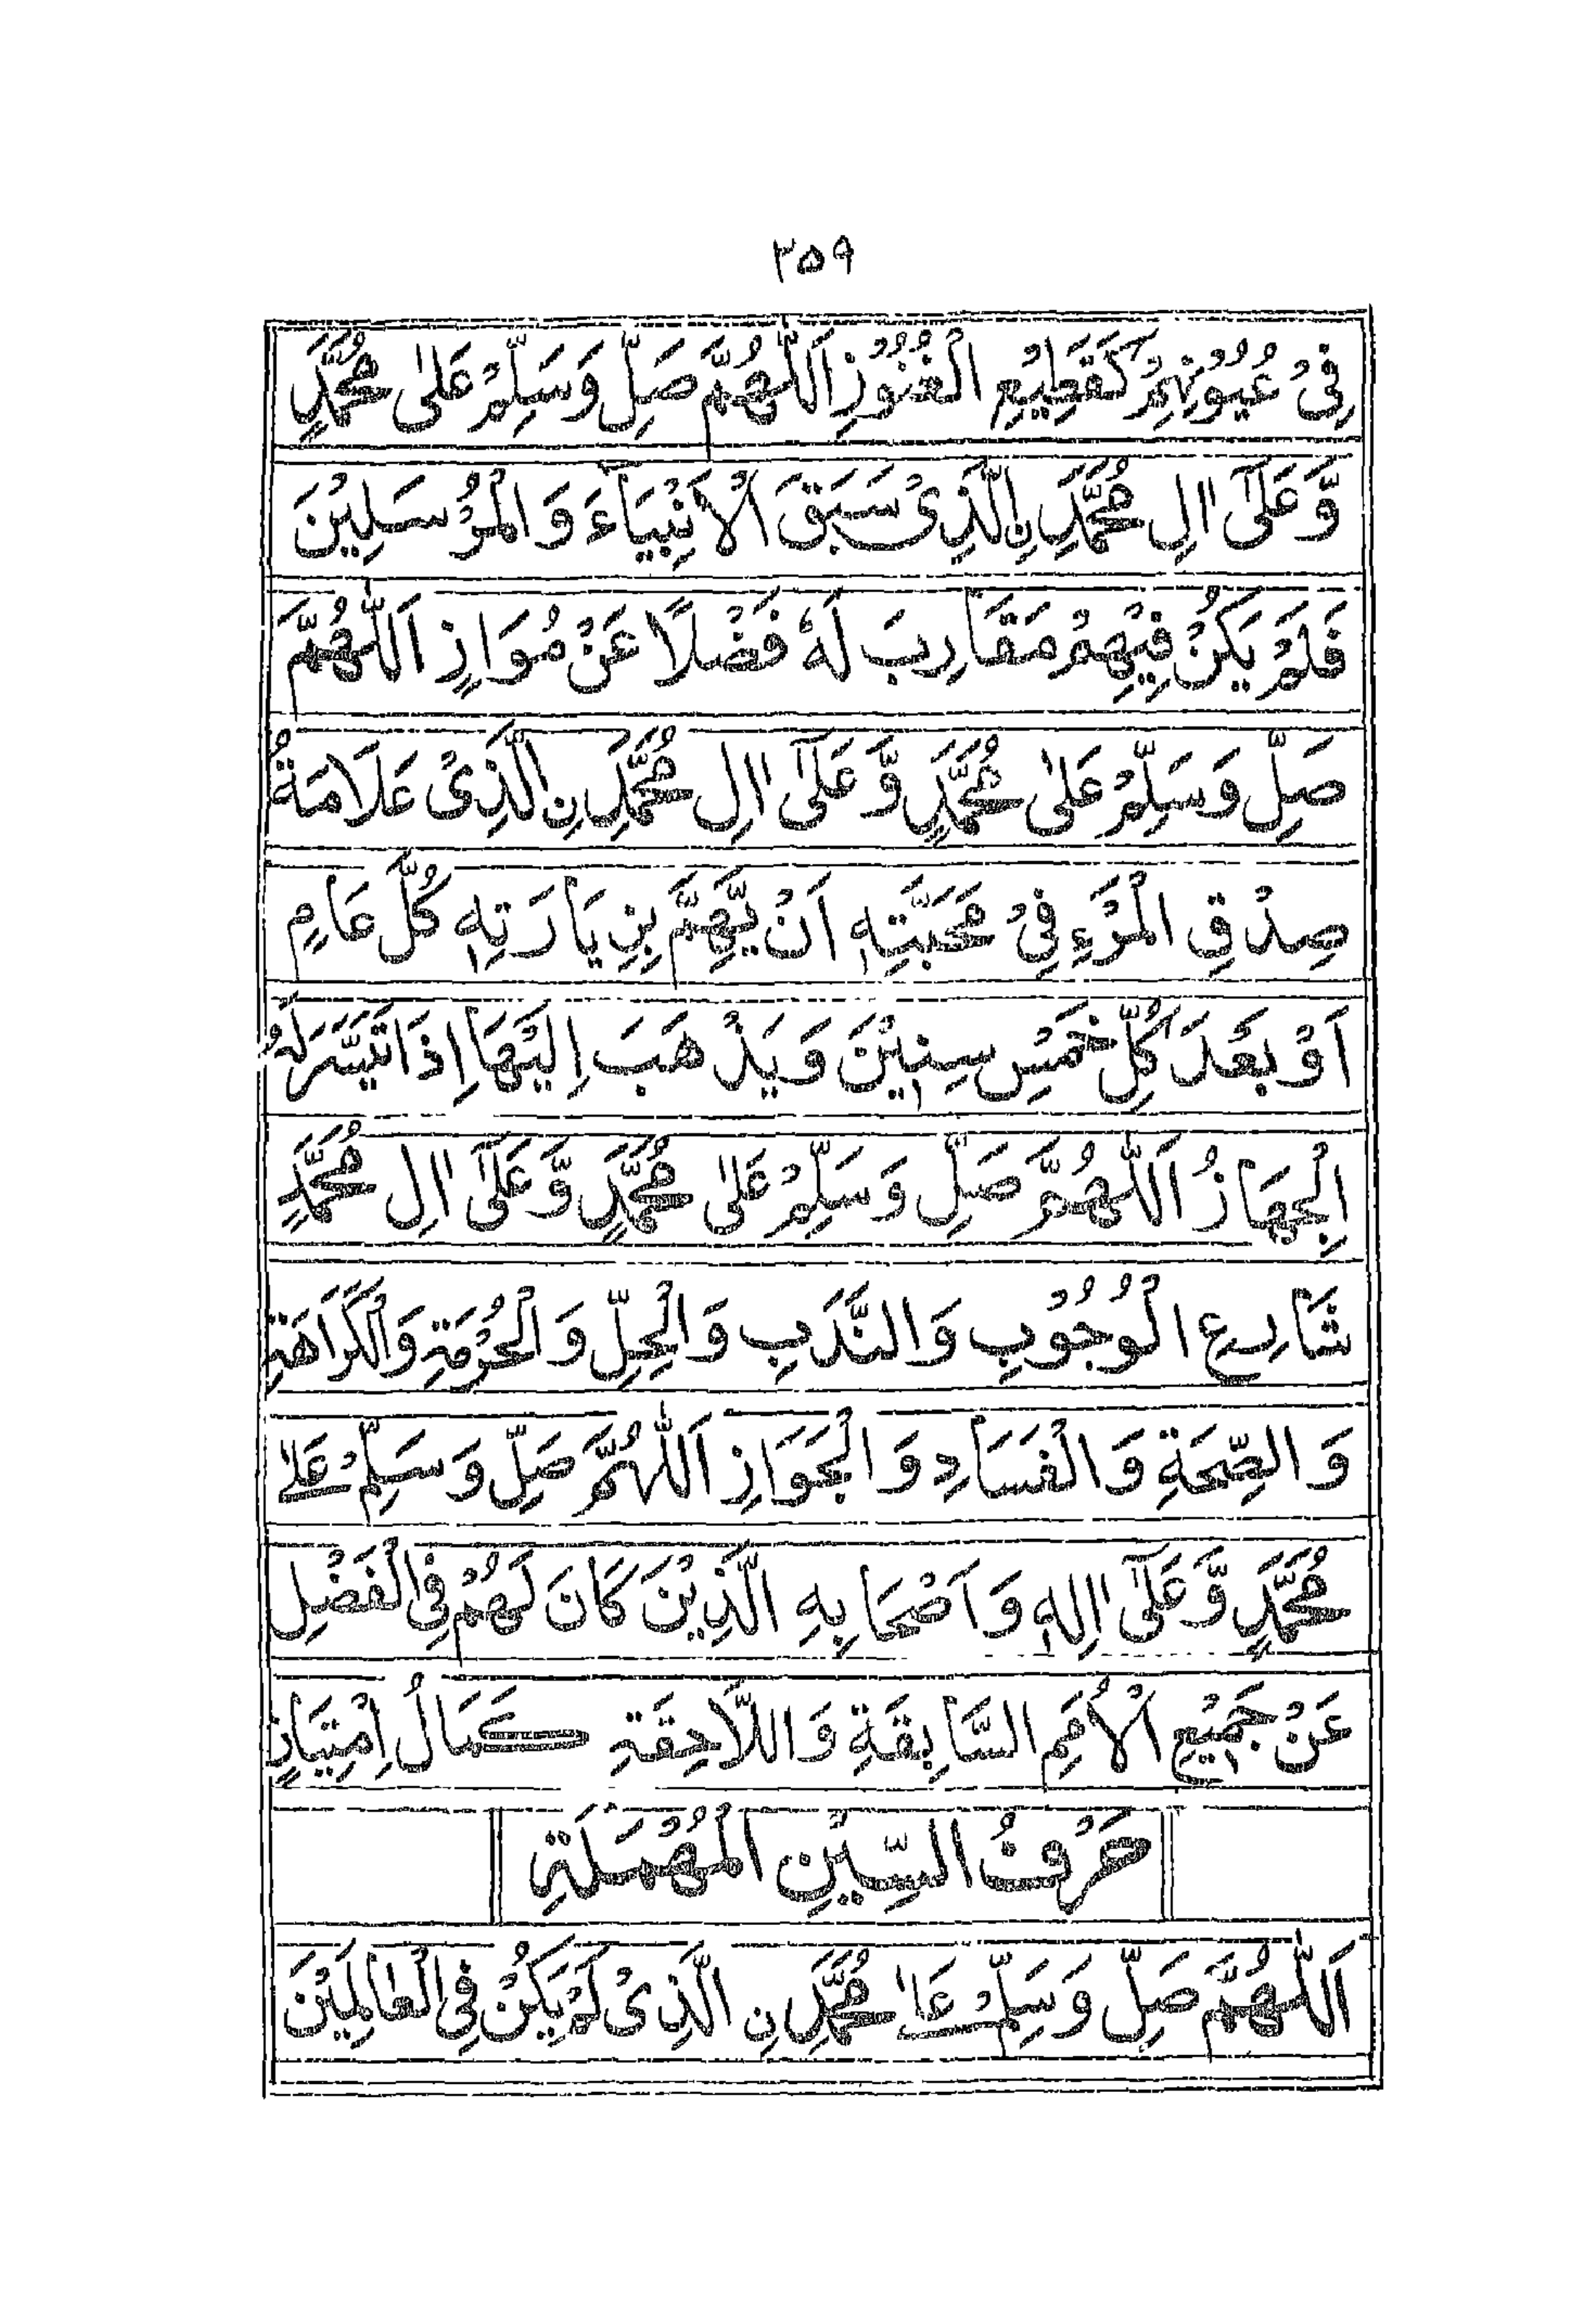 ٣٥٩
فِىْ عُيُوْنِهِمْ كَقَطِيْعِ الْعُنُوْزِ اَللّٰهُمَّ صَلِّ وَسَلِّمْ عَلٰى مُحَمَّدٍ
وَّعَلٰٓى اٰلِ مُحَمَّدِ نِ الَّذِىْ سَبَقَ الْاَنْبِيَآءَ وَالْمُرْسَلِيْنَ
فَلَمْ يَكُنْ فِيْهِمْ مُقَارِبَ لَهٗ فَضْلًا عَنْ مُوَازٍ اَللّٰهُمَّ
صَلِّ وَسَلِّمْ عَلٰى مُحَمَّدٍ وَّعَلٰٓى اٰلِ مُحَمَّدِ نِ الَّذِىْ عَلَامَةُ
صِدْقِ الْمَرْءِ فِىْ مَحَبَّتِهٖ اَنْ يَّهِمَّ بِزِيَارَتِهٖ كُلَّ عَامٍ
اَوْ بَعْدَ كُلِّ خَمْسِ سِنِيْنَ وَيَذْهَبَ اِلَيْهَا اِذَا تَيَسَّرَ لَهُ
الْجِهَازُ اَللّٰهُمَّ صَلِّ وَسَلِّمْ عَلٰى مُحَمَّدٍ وَّعَلٰٓى اٰلِ مُحَمَّدٍ
شَارِعِ الْوُجُوْبِ وَالنَّدْبِ وَالْحِلِّ وَالْحُرْمَةِ وَالْكَرَاهَةِ
وَالصِّحَةِ وَالْفَسَادِ وَالْجَوَازِ اَللّٰهُمَّ صَلِّ وَسَلِّمْ عَلٰى
مُحَمَّدٍ وَّعَلٰٓى اٰلِهٖ وَاَصْحَابِهِ الَّذِيْنَ كَانَ لَهُمْ فِى الْفَضْلِ
عَنْ جَمِيْعِ الْاُمَمِ السَّابِقَةِ وَاللَّاحِقَةِ كَمَالُ اِمْتِيَازٍ
حَرْفُ السِّيْنِ الْمُهْمَلَةِ
اَللّٰهُمَّ صَلِّ وَسَلِّمْ عَلٰى مُحَمَّدِ نِ الَّذِىْ لَمْ يَكُنْ فِى الْعَالَمِيْنَ